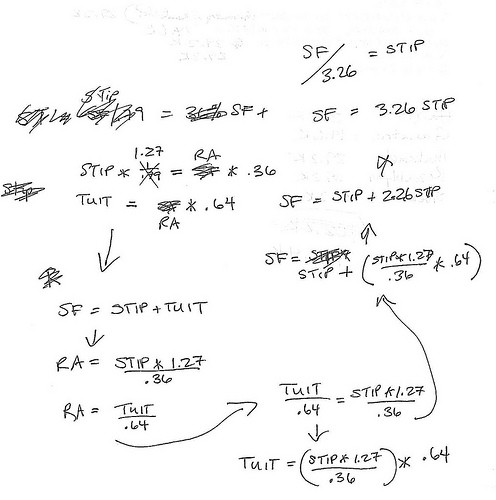 SF / 3.26 = STIP
STIP = SF +
SF = 3.26 STIP
STIP * 1.27 = RA * .36
TUIT = RA * .64
SF = STIP + 2.26 STIP
SF = STIP + (STIP*1.27 / .36 * .64)
SF = STIP + TUIT
RA = STIP * 1.27 / .36
RA = TUIT / .64
TUIT / .64 = STIP*1.27 / .36
TUIT = (STIP * 1.27 / .36) * .64